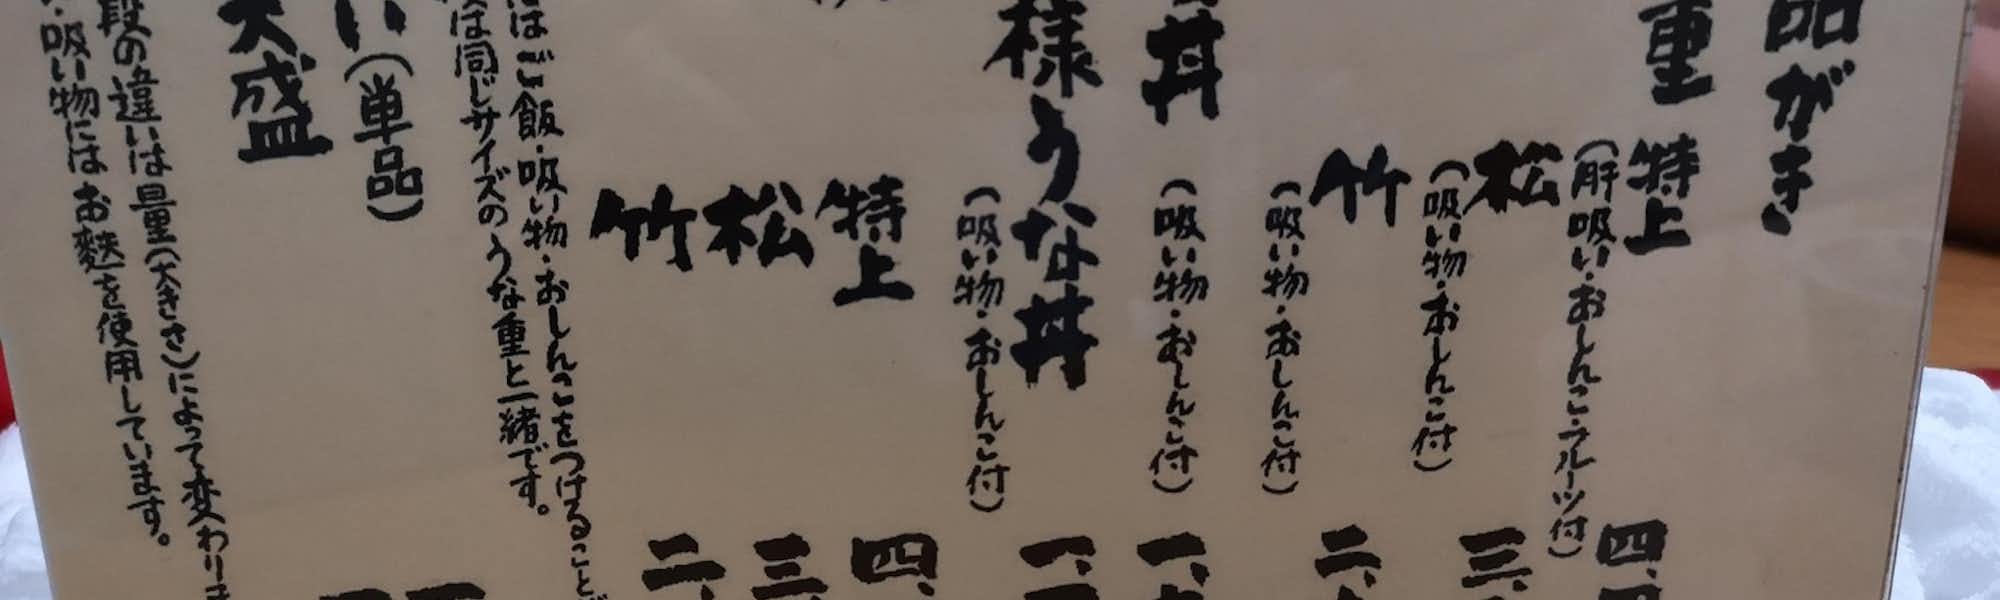 品がき
重 特上 四、
(肝吸い・おしんこ・フルーツ付)
松 三、
(吸い物・おしんこ付)
竹 二、
(吸い物・おしんこ付)
丼 一、
(吸い物・おしんこ付)
様うな丼 一、
(吸い物・おしんこ付)
特上 四、
松 三、
竹 二、
はご飯・吸い物・おしんこをつけること
は同じサイズのうな重と一緒です。
い(単品)
大盛
段の違いは量(大きさ)によって変わりま
・吸い物にはお麩を使用しています。